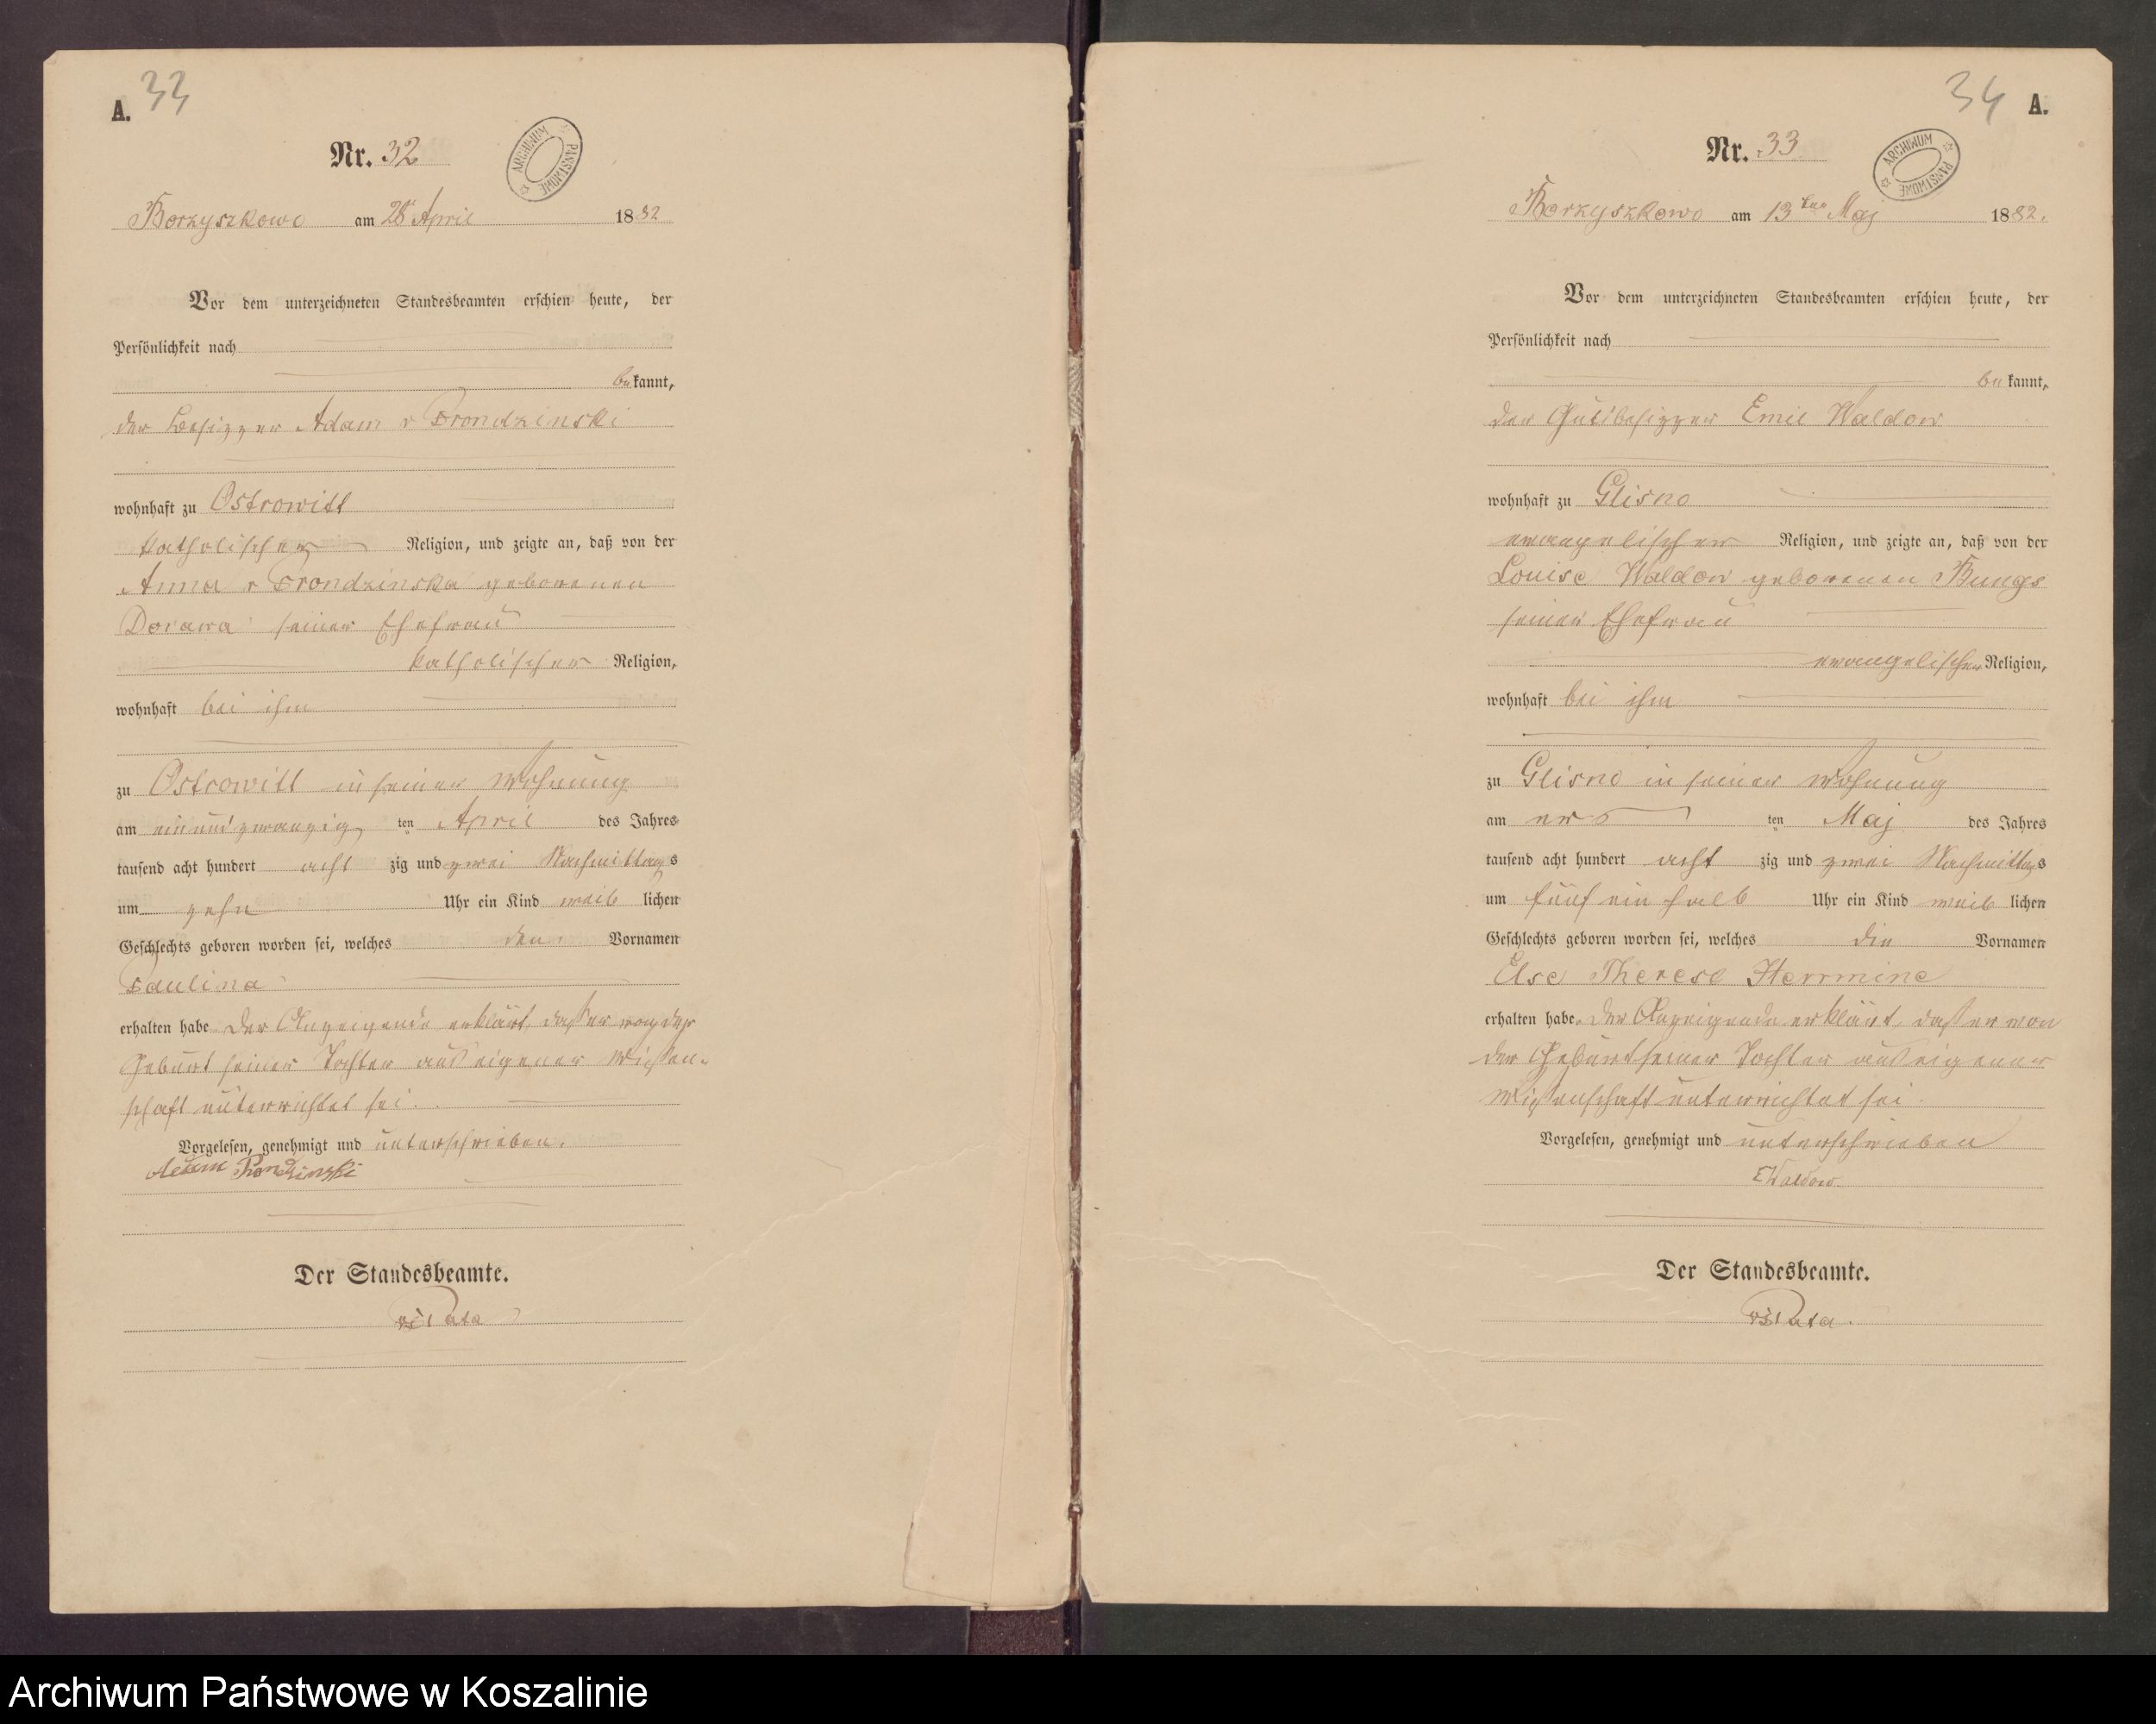 A. 33
Nr. 32
ARCHIWUM PAŃSTWOWE
Borzyszkowo am 28t April 1882
Vor dem unterzeichneten Standesbeamten erschien heute, der
Persönlichkeit nach
bekannt,
der Besitzer Adam v Prondzinski
wohnhaft zu Ostrowitt
katholischer Religion, und zeigte an, daß von der
Anna v Prondzinska geborenen
Dorawa seiner Ehefrau
katholischer Religion,
wohnhaft bei ihm
zu Ostrowitt in seiner Wohnung
am ein und zwanzig ten April des Jahres
tausend acht hundert acht zig und zwei Nachmittags
um zehn Uhr ein Kind weiblichen
Geschlechts geboren worden sei, welches den Vornamen
Paulina
erhalten habe. Der Anzeigende erklärt, daß er von der
Geburt seiner Tochter aus eigener Wissen-
schaft unterrichtet sei.
Vorgelesen, genehmigt und unterschrieben.
Adam Prondzinski
Der Standesbeamte.
34 A.
Nr. 33
ARCHIWUM PAŃSTWOWE
Borzyszkowo am 13ten Maj 1882.
Vor dem unterzeichneten Standesbeamten erschien heute, der
Persönlichkeit nach
bekannt,
der Gutsbesitzer Emil Waldow
wohnhaft zu Glisno
evangelischer Religion, und zeigte an, daß von der
Louise Waldow geborenen Bungs
seiner Ehefrau
evangelischer Religion,
wohnhaft bei ihm
zu Glisno in seiner Wohnung
am ers ten Maj des Jahres
tausend acht hundert acht zig und zwei Nachmittags
um fünf ein halb Uhr ein Kind weiblichen
Geschlechts geboren worden sei, welches die Vornamen
Else Therese Herrmine
erhalten habe. Der Anzeigende erklärt, daß er von
der Geburt seiner Tochter aus eigener
Wissenschaft unterrichtet sei.
Vorgelesen, genehmigt und unterschrieben
E Waldow.
Der Standesbeamte.
Archiwum Państwowe w Koszalinie